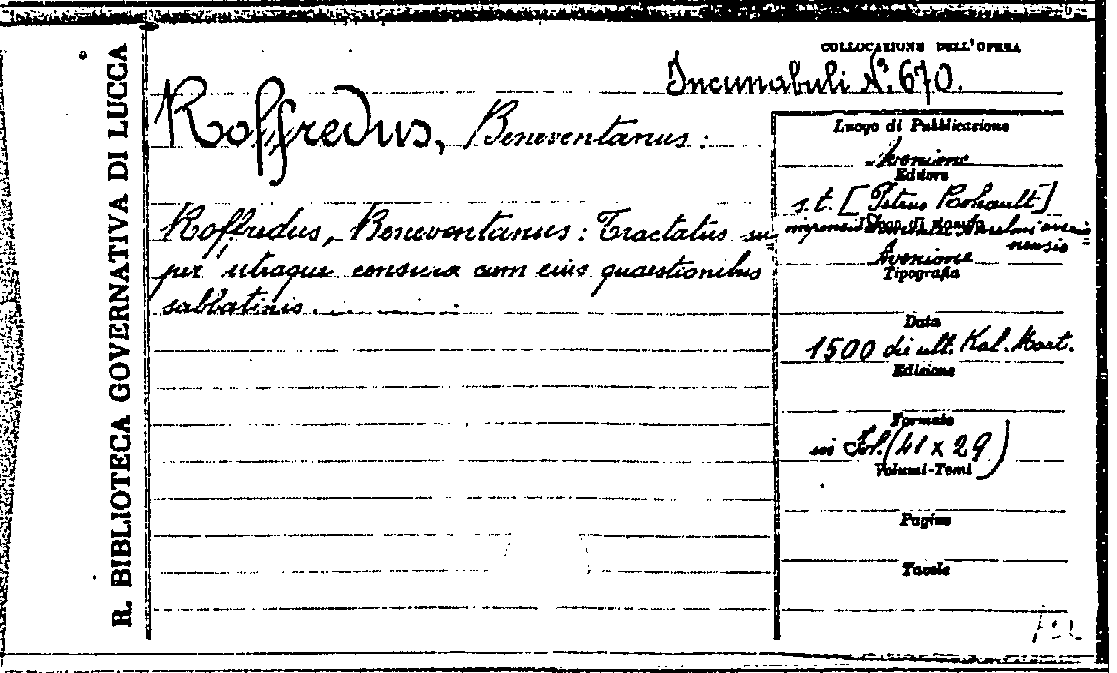 R. BIBLIOTECA GOVERNATIVA DI LUCCA
COLLOCAZIONE DELL'OPERA
Incunabuli N.º 670.
Roffredus, Beneventanus:
Roffredus, Beneventanus: Tractatus su=
per utraque censura cum eius quaestionibus
sabbatinis.
Luogo di Pubblicazione
Avenione
Editore
s.t. [Petrus Rohault]
impensis
nensis
Avenione
Tipografia
Data
1500 die ult. Kal. Mart.
Edizione
Formato
in Fol. (41 x 29)
Volumi-Tomi
Pagine
Tavole